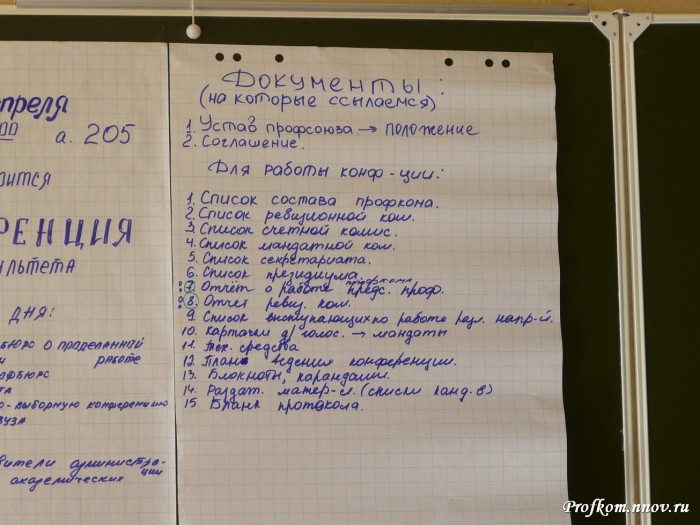 апреля
00 а. 205
оится
РЕНЦИЯ
ультета
ДНЯ:
БЮРО О ПРОДЕЛАННОЙ
РАБОТЕ
ОФБЮРО
о-выборную конференцию
ВУЗА
вители администра-
ции
академических
Документы:
(на которые ссылаемся)
1. Устав профсоюза → положение
2. Соглашение.
Для работы конф-ции:
1. Список состава профкома.
2. Список ревизионной ком.
3. Список счетной комис.
4. Список мандатной ком.
5. Список секретариата.
6. Список президиума.
профкома
7. Отчёт о работе предс. проф.
8. Отчет ревиз. ком.
9. Список выступающих по работе разл. напр-й.
10. Карточки д/ голос. → мандаты
11. Тех. средства
12. План ведения конференции.
13. Блокноты, карандаши.
14. Раздат. матер-л. (списки канд. в)
15 Бланк протокола.
Profkom.nnov.ru